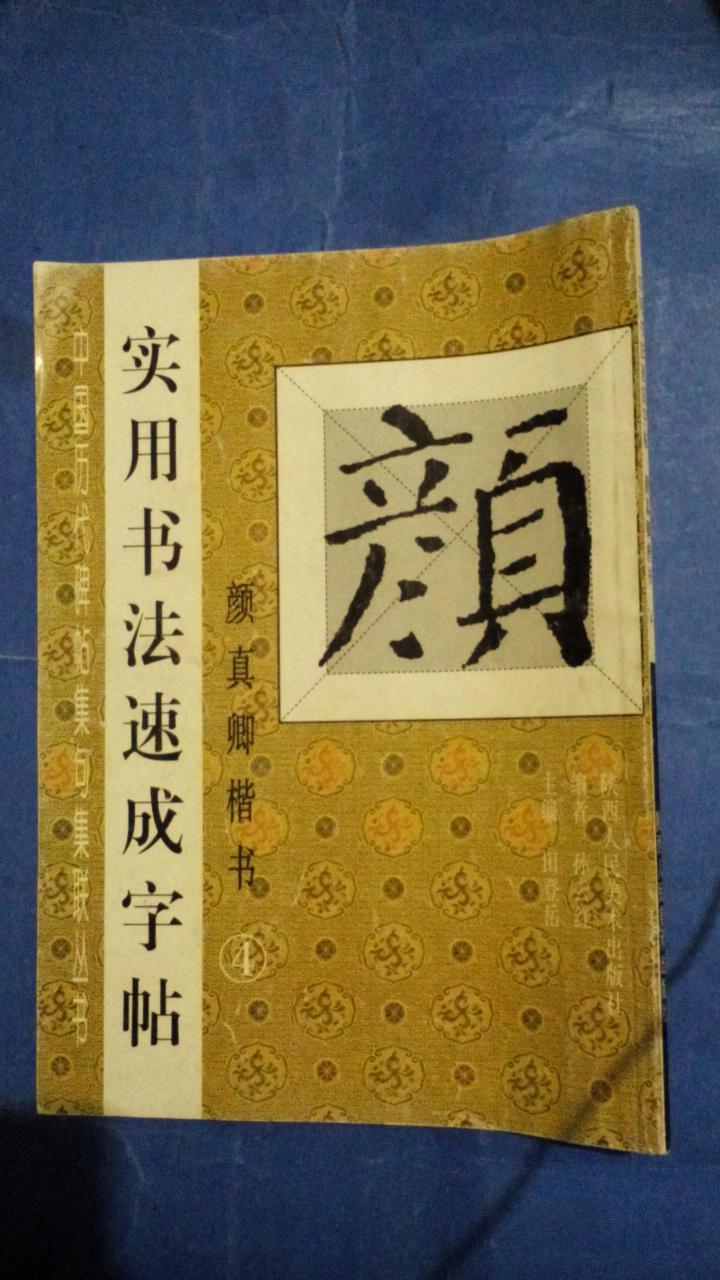 中国历代碑帖集句集联丛书
实用书法速成字帖
颜真卿楷书
④
顔
主编 田登岳
编者
陕西人民美术出版社